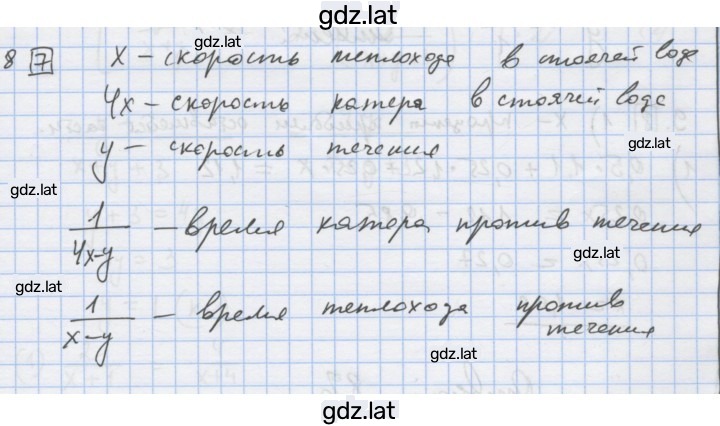 gdz.lat
8 7 x – скорость теплохода в стоячей воде
gdz.lat
4x – скорость катера в стоячей воде
y – скорость течения
gdz.lat
1/(4x-y) – время катера против течения
gdz.lat
1/(x-y) – время теплохода против течения
gdz.lat
gdz.lat